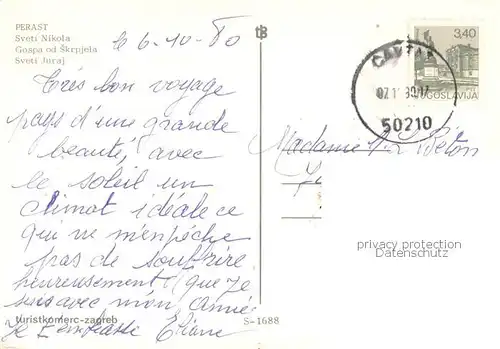 PERAST
Sveti Nikola
Gospa od Škrpjela
Sveti Juraj
le 6-10-80
Très bon voyage
pays d'une grande
beauté, avec
le soleil un
climat idéale ce
qui ne m'empêche
pas de souffrire
heureusement que Je
suis avec mon
Je t'embrasse Eliane
turistkomerc-zagreb
S-1688
3,40
JUGOSLAVIJA
CAVTAT
50210
Madame Béton
privacy protection
Datenschutz